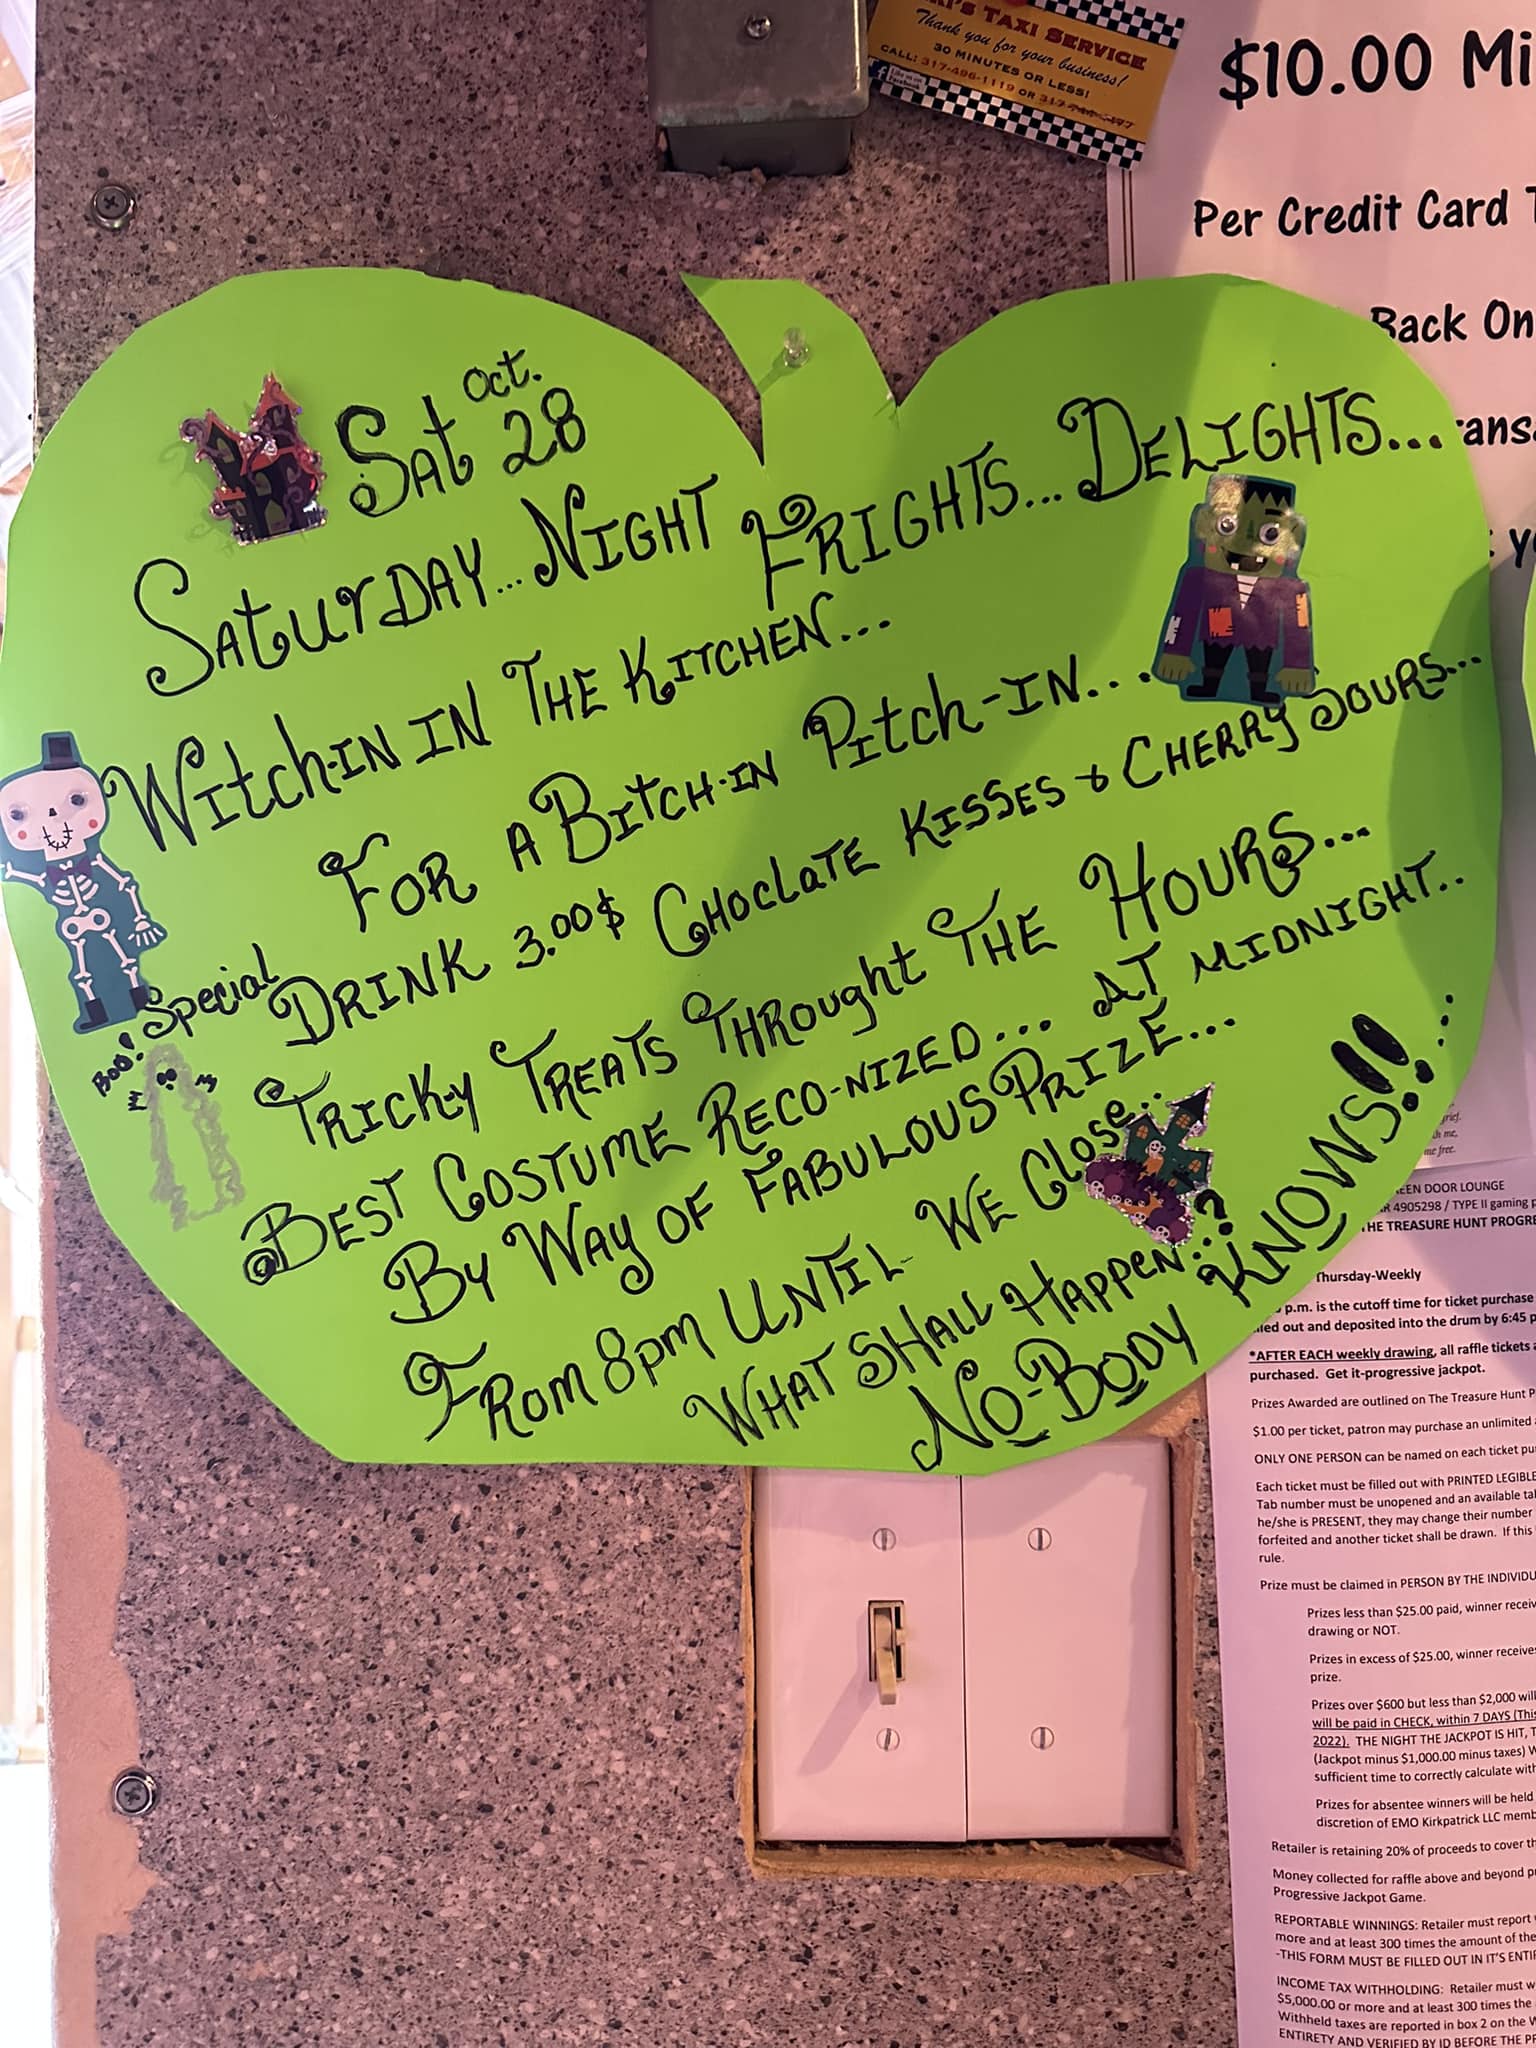 TAXI SERVICE
Thank you for your business!
30 MINUTES OR LESS!
CALL: 317-496-1119 OR
Like us on
Facebook
$10.00 Mi
Per Credit Card T
Back On
ansa
Sat Oct. 28
SATURDAY... NIGHT FRIGHTS... DELIGHTS...
WITCH-IN IN THE KITCHEN...
FOR A BITCH-IN PITCH-IN...
Special DRINK 3.00$ CHOCLATE KISSES & CHERRY SOURS...
BOO!
TRICK-Y TREATS THROUGHT THE HOURS...
BEST COSTUME RECO-NIZED... AT MIDNIGHT..
BY WAY OF FABULOUS PRIZE...
FROM 8pm UNTIL WE Close...
WHAT SHALL HAPPEN...?
NO-BODY KNOWS!!...
me free.
EEN DOOR LOUNGE
R 4905298 / TYPE II gaming p
HE TREASURE HUNT PROGRE
Thursday-Weekly
p.m. is the cutoff time for ticket purchase
led out and deposited into the drum by 6:45 p
*AFTER EACH weekly drawing, all raffle tickets a
purchased. Get it-progressive jackpot.
Prizes Awarded are outlined on The Treasure Hunt P
$1.00 per ticket, patron may purchase an unlimited
ONLY ONE PERSON can be named on each ticket pu
Each ticket must be filled out with PRINTED LEGIBLE
Tab number must be unopened and an available ta
he/she is PRESENT, they may change their number
forfeited and another ticket shall be drawn. If this
rule.
Prize must be claimed in PERSON BY THE INDIVIDU
Prizes less than $25.00 paid, winner receiv
drawing or NOT.
Prizes in excess of $25.00, winner receives
prize.
Prizes over $600 but less than $2,000 will
will be paid in CHECK, within 7 DAYS (This
2022). THE NIGHT THE JACKPOT IS HIT, T
(Jackpot minus $1,000.00 minus taxes) W
sufficient time to correctly calculate with
Prizes for absentee winners will be held
discretion of EMO Kirkpatrick LLC memb
Retailer is retaining 20% of proceeds to cover th
Money collected for raffle above and beyond p
Progressive Jackpot Game.
REPORTABLE WINNINGS: Retailer must report
more and at least 300 times the amount of the
-THIS FORM MUST BE FILLED OUT IN IT'S ENTI
INCOME TAX WITHHOLDING: Retailer must w
$5,000.00 or more and at least 300 times the
Withheld taxes are reported in box 2 on the W
ENTIRETY AND VERIFIED BY ID BEFORE THE PR